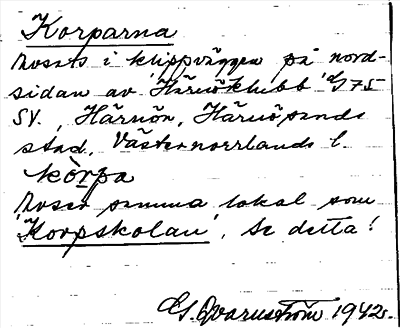 Korparna
i klippväggen på nord-
sidan av Härnöklubb
SV., Härnön, Härnösands
stad, Västernorrlands l.
kòrpa
samma lokal som
'Korpskolan', Se detta!
G. Qvarnström 1942.